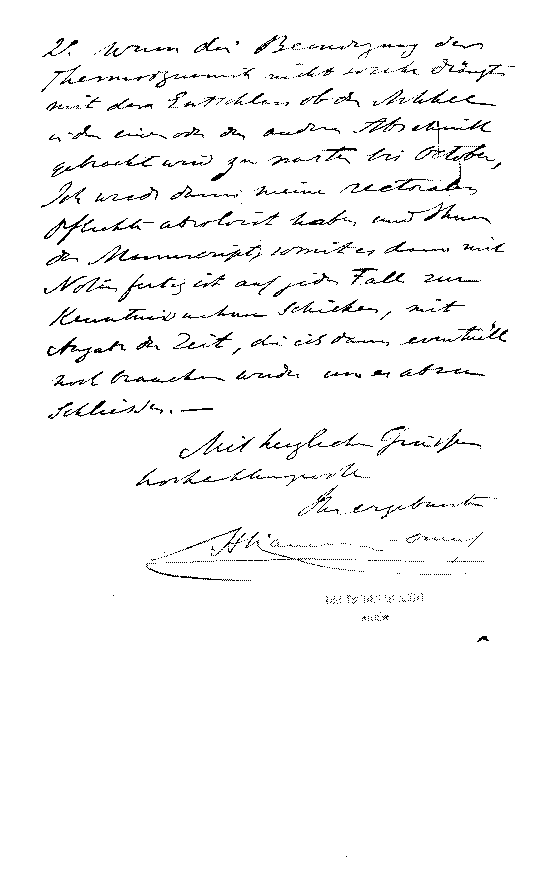 2. Wenn die Beendigung der
Thermodynamik nicht sosehr drängt
mit dem Entschluss ob der Artikel
in den einen oder den anderen Abschnitt
gebracht wird zu warten bis October,
Ich werde dann meine rectoralen
Pflichten absolvirt haben und Ihnen
das Manuscript, soweit es dann mit
Noten fertig ist auf jeden Fall zur
Kenntnisnahme schicken, mit
Angabe der Zeit, die ich dann eventuell
noch brauchen werde um es abzu
schliessen. —
Mit herzlichen Grüssen
hochachtungsvoll
Ihr ergebenster